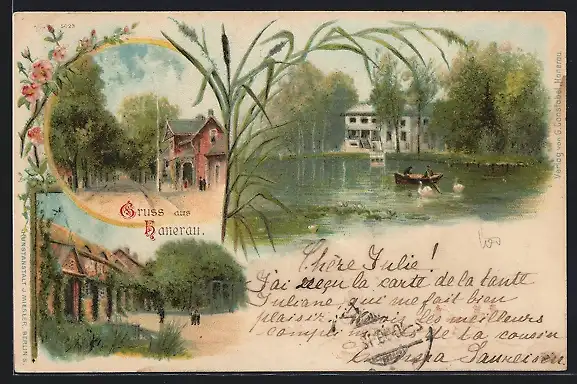 5029
Gruss aus
Hanerau.
Verlag von G. Constabel, Hanerau
KUNSTANSTALT J. MIESLER, BERLIN S.
Chère Julie!
J'ai reçu la carte de la tante
Juliane, qui me fait bien
plaisir. les meilleurs
de ta cousin